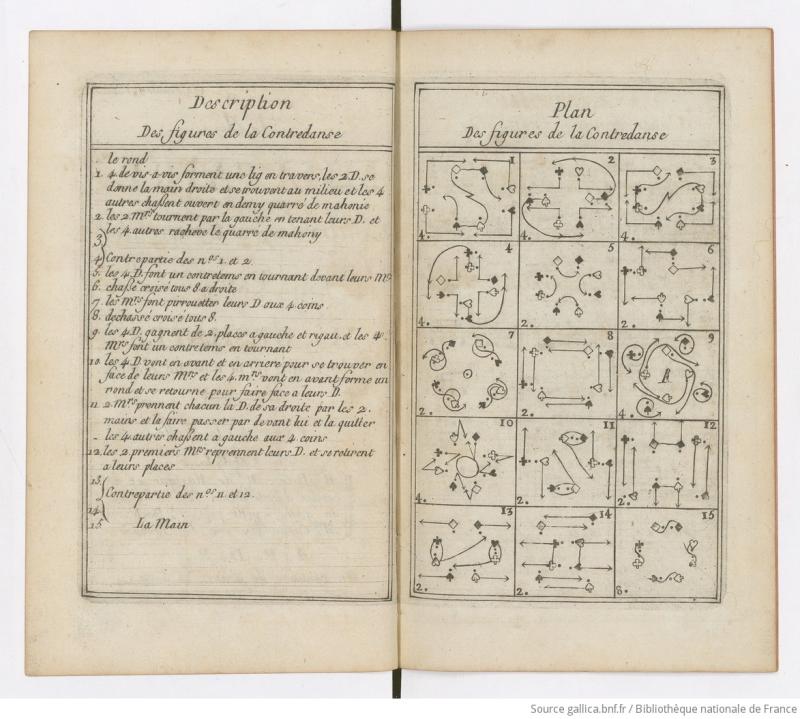 Description
Des figures de la Contredanse
. le rond
1. 4 de vis a vis, forment une lig en travers, les 2 D. se
donne la main droite et se trouvent au milieu et les 4
autres chassent ouvert en demy quarré de mahonie
2. les 2 Mrs tournent par la gauche en tenant leurs D. et
les 4 autres racheve le quarre de mahony
3
4 Contrepartie des nos 1. et 2.
5. les 4 D. font un contretems en tournant devant leurs Mrs
6. chassé croisé tous 8 a droite
7. les Mrs font pirrouetter leurs D aux 4 coins.
8. dechassé croisé tous 8.
9. les 4 D. gagnent de 2, places a gauche et rigait. et les 4.
Mrs font un contretems en tournant
10. les 4 D vont en avant et en arriere pour se trouver en
face de leurs Mrs et les 4. mrs vont en avant forme un
rond et se retourne pour faire face a leurs D.
11. 2 Mrs prennent chacun la D. de sa droite par les 2.
mains et la faire passer par devant lui et la quitter
- les 4 autres chassent a gauche aux 4. coins
12. les 2 premiers Mrs reprennent leurs D. et se retirent
a leurs places
13.
Contrepartie des nos 11. et 12.
14.
15. La Main
Plan
Des figures de la Contredanse
1 2 3
4. 2. 4.
4 5 6
4. 2. 2.
7 8 9
2. 2. 4.
10 11 12
4. 2. 2.
13 14 15
2. 2. 8.
Source gallica.bnf.fr / Bibliothèque nationale de France